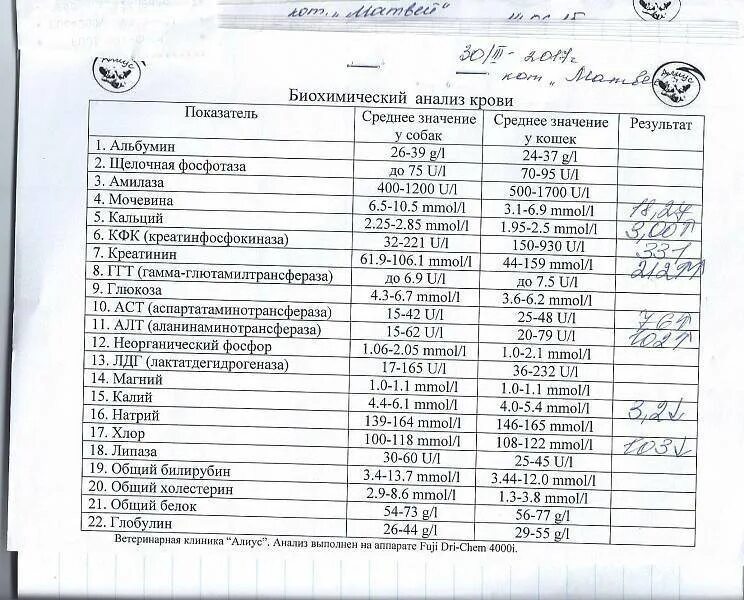 кот. „ Матвей"
30/III - 2017г
кот „ Матвей
Алиус
Алиус
Биохимический анализ крови
Показатель Среднее значение у собак Среднее значение у кошек Результат
1. Альбумин 26-39 g/l 24-37 g/l
2. Щелочная фосфотаза до 75 U/l 70-95 U/l
3. Амилаза 400-1200 U/l 500-1700 U/l
4. Мочевина 6.5-10.5 mmol/l 3.1-6.9 mmol/l
5. Кальций 2.25-2.85 mmol/l 1.95-2.5 mmol/l 3,00↑
6. КФК (креатинфосфокиназа) 32-221 U/l 150-930 U/l 331
7. Креатинин 61.9-106.1 mmol/l 44-159 mmol/l 212↑↑
8. ГГТ (гамма-глютамилтрансфераза) до 6.9 U/l до 7.5 U/l
9. Глюкоза 4.3-6.7 mmol/l 3.6-6.2 mmol/l
10. АСТ (аспартатаминотрансфераза) 15-42 U/l 25-48 U/l 76↑
11. АЛТ (аланинаминотрансфераза) 15-62 U/l 20-79 U/l 102↑
12. Неорганический фосфор 1.06-2.05 mmol/l 1.0-2.1 mmol/l
13. ЛДГ (лактатдегидрогеназа) 17-165 U/l 36-232 U/l
14. Магний 1.0-1.1 mmol/l 1.0-1.1 mmol/l
15. Калий 4.4-6.1 mmol/l 4.0-5.4 mmol/l 3,2↓
16. Натрий 139-164 mmol/l 146-165 mmol/l
17. Хлор 100-118 mmol/l 108-122 mmol/l 103↓
18. Липаза 30-60 U/l 25-45 U/l
19. Общий билирубин 3.4-13.7 mmol/l 3.44-12.0 mmol/l
20. Общий холестерин 2.9-8.6 mmol/l 1.3-3.8 mmol/l
21. Общий белок 54-73 g/l 56-77 g/l
22. Глобулин 26-44 g/l 29-55 g/l
Ветеринарная клиника “Алиус”. Анализ выполнен на аппарате Fuji Dri-Chem 4000i.